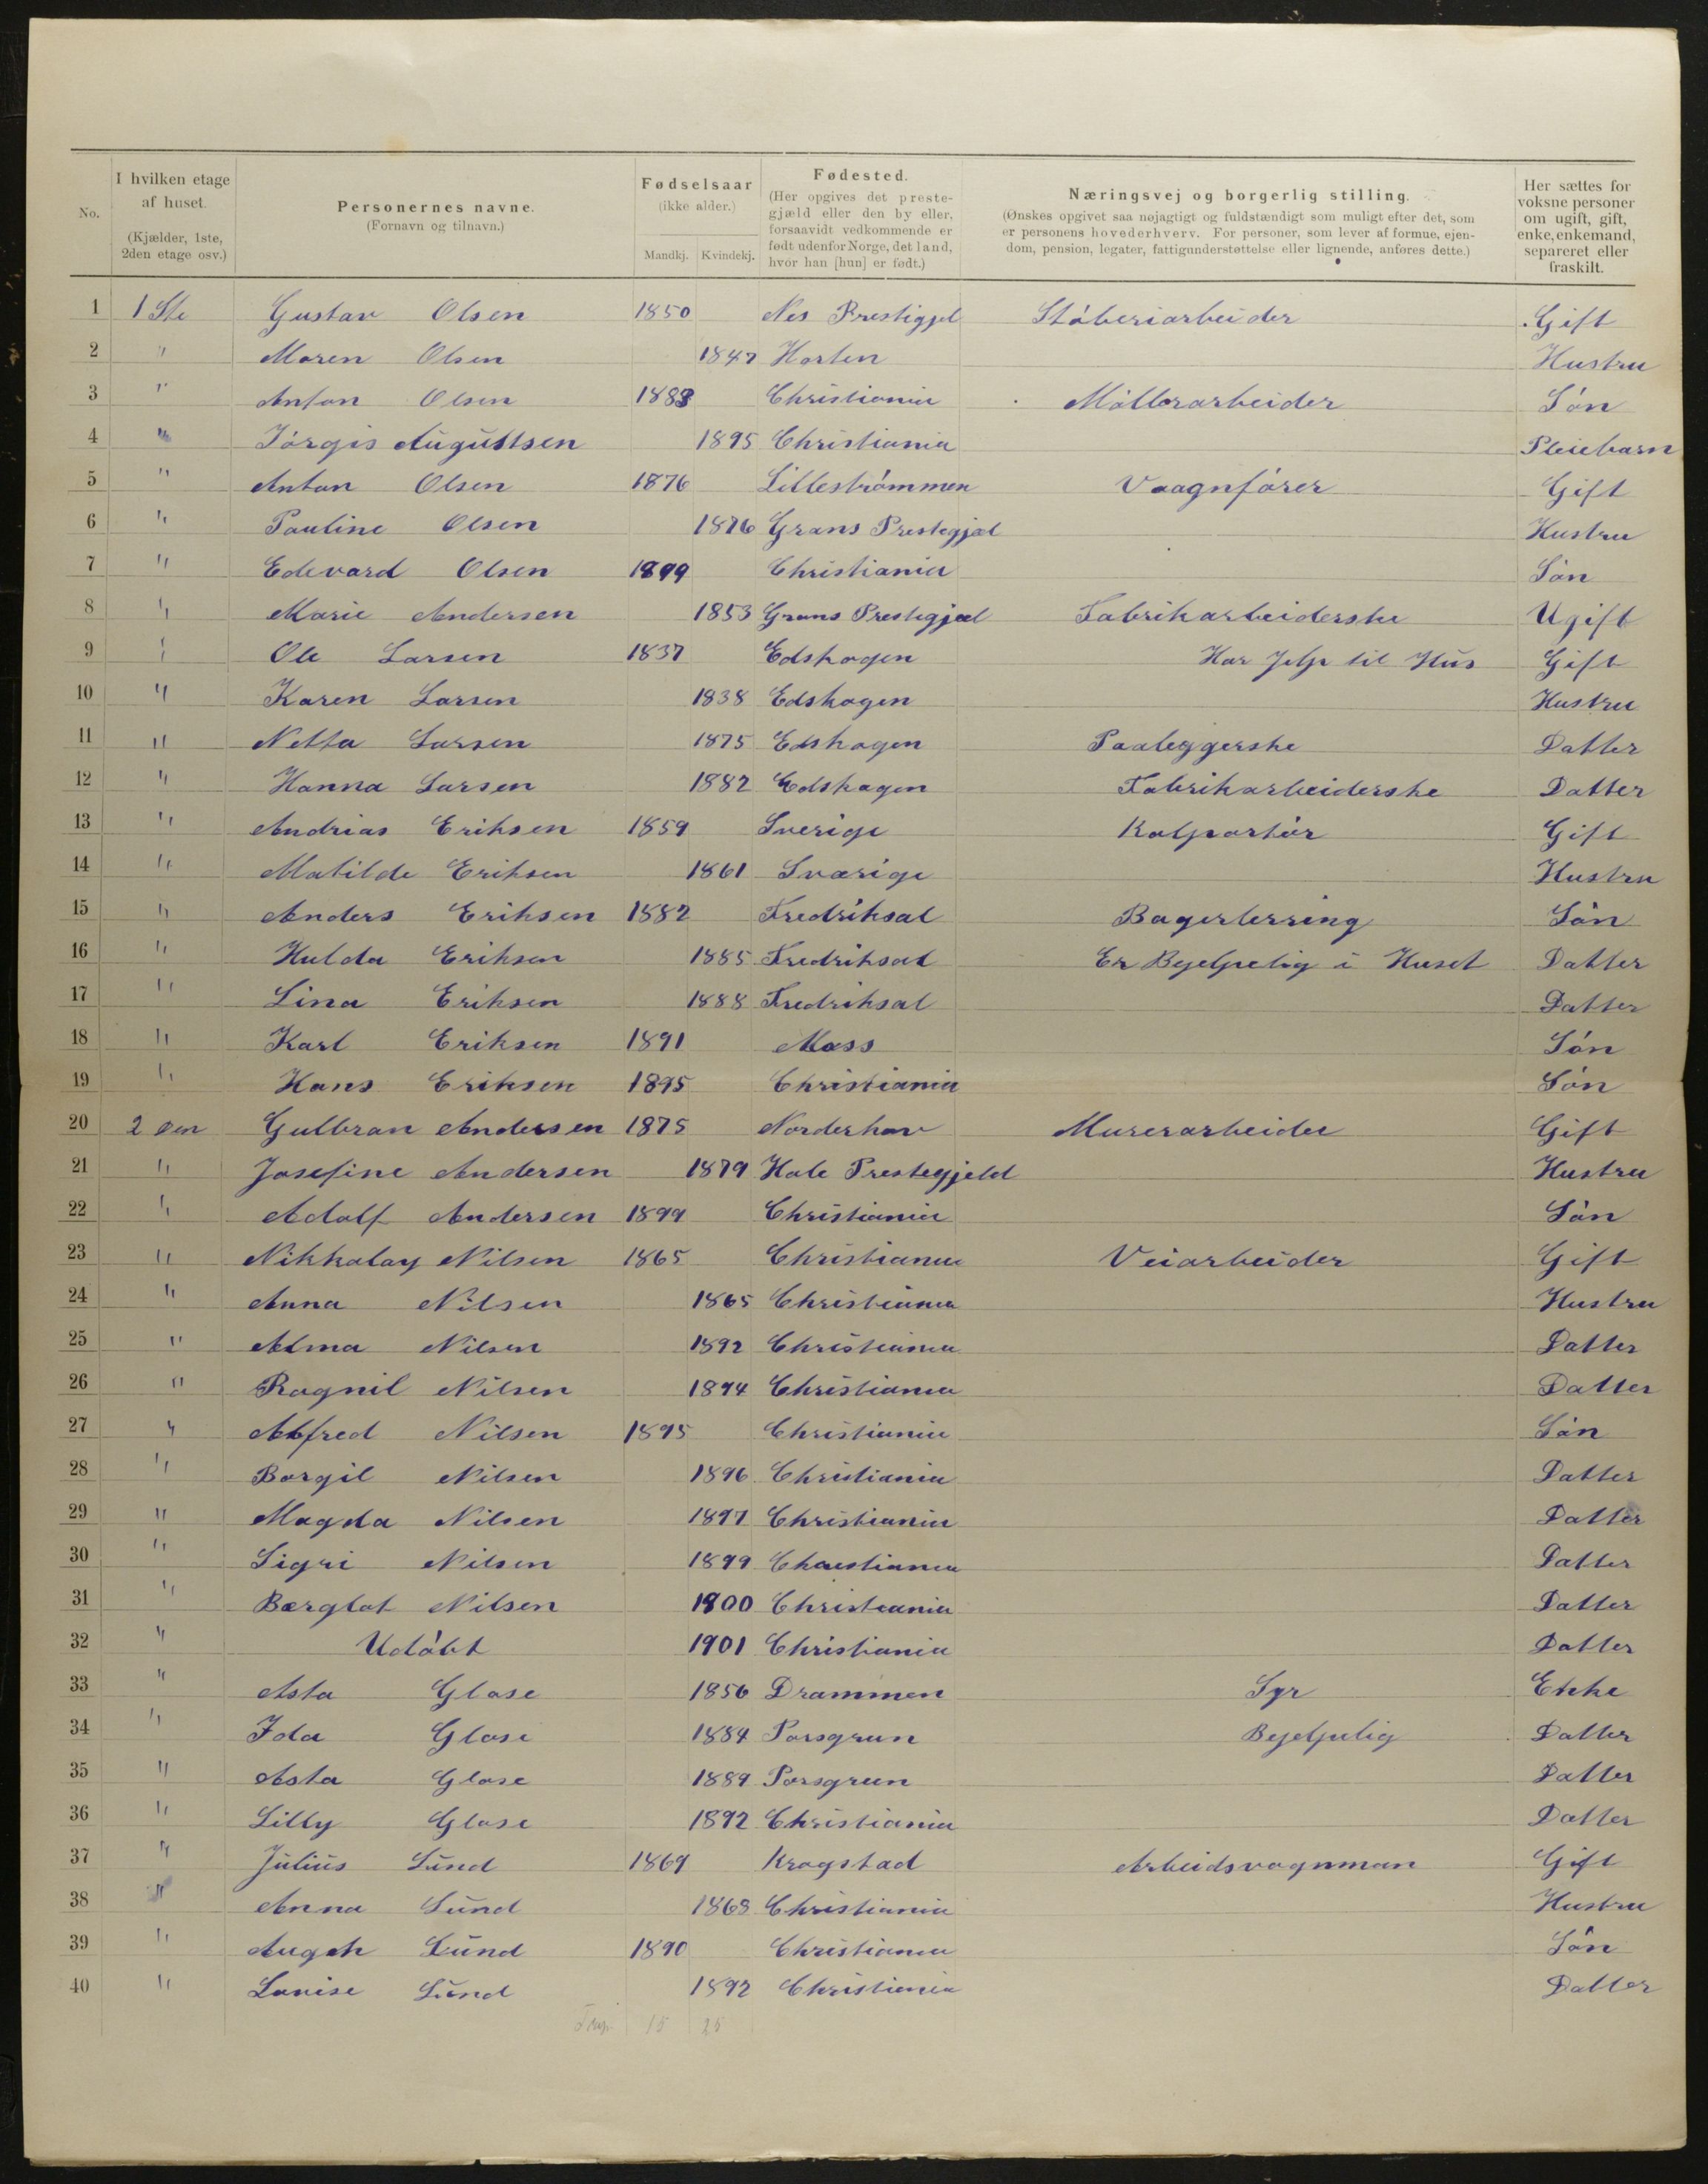 No.
I hvilken etage af huset. (Kjælder, 1ste, 2den etage osv.)
Personernes navne. (Fornavn og tilnavn.)
Fødselsaar (ikke alder.) Mandkj. Kvindekj.
Fødested. (Her opgives det prestegjæld eller den by eller, forsaavidt vedkommende er født udenfor Norge, det land, hvor han [hun] er født.)
Næringsvej og borgerlig stilling. (Ønskes opgivet saa nøjagtigt og fuldstændigt som muligt efter det, som er personens hovederhverv. For personer, som lever af formue, ejendom, pension, legater, fattigunderstøttelse eller lignende, anføres dette.)
Her sættes for voksne personer om ugift, gift, enke, enkemand, separeret eller fraskilt.
1 1 Ste Gustav Olsen 1850 Nes Prestigjel Støberiarbeider Gift
2 " Maren Olsen 1847 Horten Hustru
3 " Anton Olsen 1883 Christiania Møllerarbeider Søn
4 " Jørgis Augustsen 1895 Christiania Pleiebarn
5 " Anton Olsen 1876 Lillestrømmen Vaagnfører Gift
6 " Pauline Olsen 1876 Grans Prestegjæl Hustru
7 " Edevard Olsen 1899 Christiania Søn
8 " Marie Andersen 1853 Grans Prestegjæl Fabrikarbeiderske Ugift
9 " Ole Larsen 1837 Edskogen Har Jelp til Hus Gift
10 " Karen Larsen 1838 Edskogen Hustru
11 " Netta Larsen 1875 Edskogen Paaleggerske Datter
12 " Hanna Larsen 1882 Edskogen Fabrikarbeiderske Datter
13 " Andrias Eriksen 1859 Sverige Kolportør Gift
14 " Matilde Eriksen 1861 Sværige Hustru
15 " Anders Eriksen 1882 Fredriksal Bagerlerring Søn
16 " Hulda Eriksen 1885 Fredriksal Er Behjelpelig i Huset Datter
17 " Lina Eriksen 1888 Fredriksal Datter
18 " Karl Eriksen 1891 Moss Søn
19 " Hans Eriksen 1895 Christiania Søn
20 2 den Gulbran Andersen 1875 Norderhov Murerarbeider Gift
21 " Josefine Andersen 1879 Hole Prestegjeld Hustru
22 " Adolf Andersen 1899 Christiania Søn
23 " Nikkolay Nilsen 1865 Christiania Veiarbeider Gift
24 " Anna Nilsen 1865 Christiania Hustru
25 " Alma Nilsen 1892 Christiania Datter
26 " Ragnil Nilsen 1894 Christiania Datter
27 " Alfred Nilsen 1895 Christiania Søn
28 " Borgil Nilsen 1896 Christiania Datter
29 " Magda Nilsen 1897 Christiania Datter
30 " Sigri Nilsen 1899 Christiania Datter
31 " Bærglot Nilsen 1900 Christiania Datter
32 " Udøbt 1901 Christiania Datter
33 " Asta Glase 1856 Drammen Syr Enke
34 " Ida Glase 1884 Porsgrun Bejelpelig Datter
35 " Asta Glase 1889 Porsgrun Datter
36 " Lilly Glase 1892 Christiania Datter
37 " Julius Lund 1869 Krogstad Arbeidsvognman Gift
38 " Anna Lund 1868 Christiania Hustru
39 " Lund 1890 Christiania Søn
40 " Lovise Lund 1892 Christiania Datter
15 25